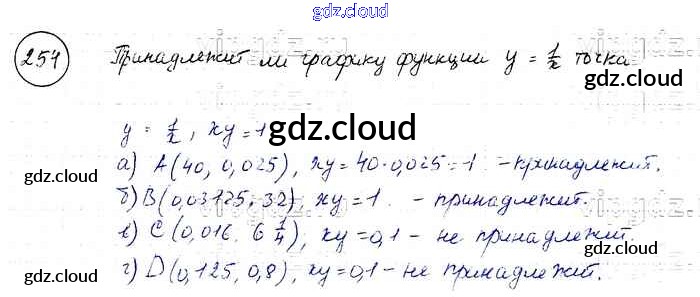 gdz.cloud
254 Принадлежит ли графику функции y = 1/x точка
gdz.cloud
y = 1/x, xy = 1
gdz.cloud
а) A(40, 0,025), xy = 40·0,025 = 1 - принадлежит.
gdz.cloud
gdz.cloud
б) B(0,03125; 32), xy = 1 - принадлежит.
в) C(0,016. 6 1/4), xy = 0,1 - не принадлежит.
г) D(0,125, 0,8), xy = 0,1 - не принадлежит.
gdz.cloud
gdz.cloud